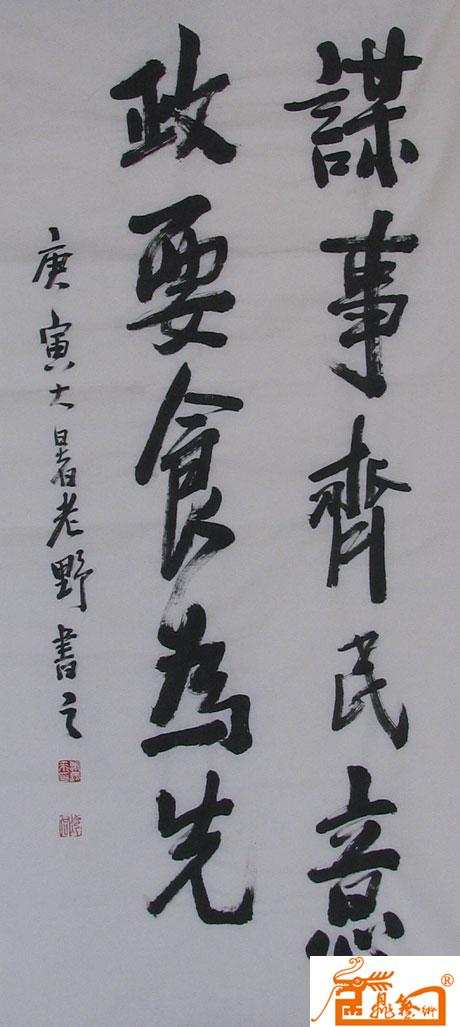 謀事齊民意
政要食為先
庚寅大暑老野書之